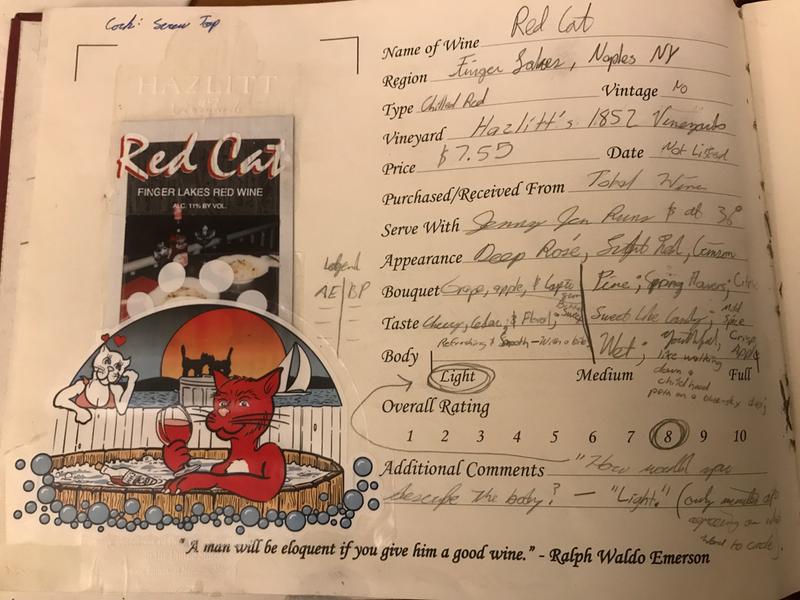 Cork: Screw Top
HAZLITT
Red Cat
FINGER LAKES RED WINE
ALC. 11% BY VOL.
Legend
AE | BP
Name of Wine Red Cat
Region Finger Lakes, Naples NY
Type Chilled Red Vintage No
Vineyard Hazlitt's 1852 Vineyards
Price $7.55 Date Not Listed
Purchased/Received From Total Wine
Serve With Jenny Jen Runs & at 38°
Appearance Deep Rosé, Light Red, Crimson
Bouquet Grape, apple, & Pine; Spring flowers; Citrus
Taste Cherry, Cedar, & Floral, Sweet Like Candy; Mild Spice
Refreshing & Smooth – With a bite
Body Wet; youthful, Crisp Apple
like walking
down a
childhood
path on a blue-sky day;
Light Medium Full
Overall Rating
1 2 3 4 5 6 7 8 9 10
Additional Comments "How would you
describe the body? — "Light." (only minutes after
agreeing on what
word to circle.)
"A man will be eloquent if you give him a good wine." - Ralph Waldo Emerson